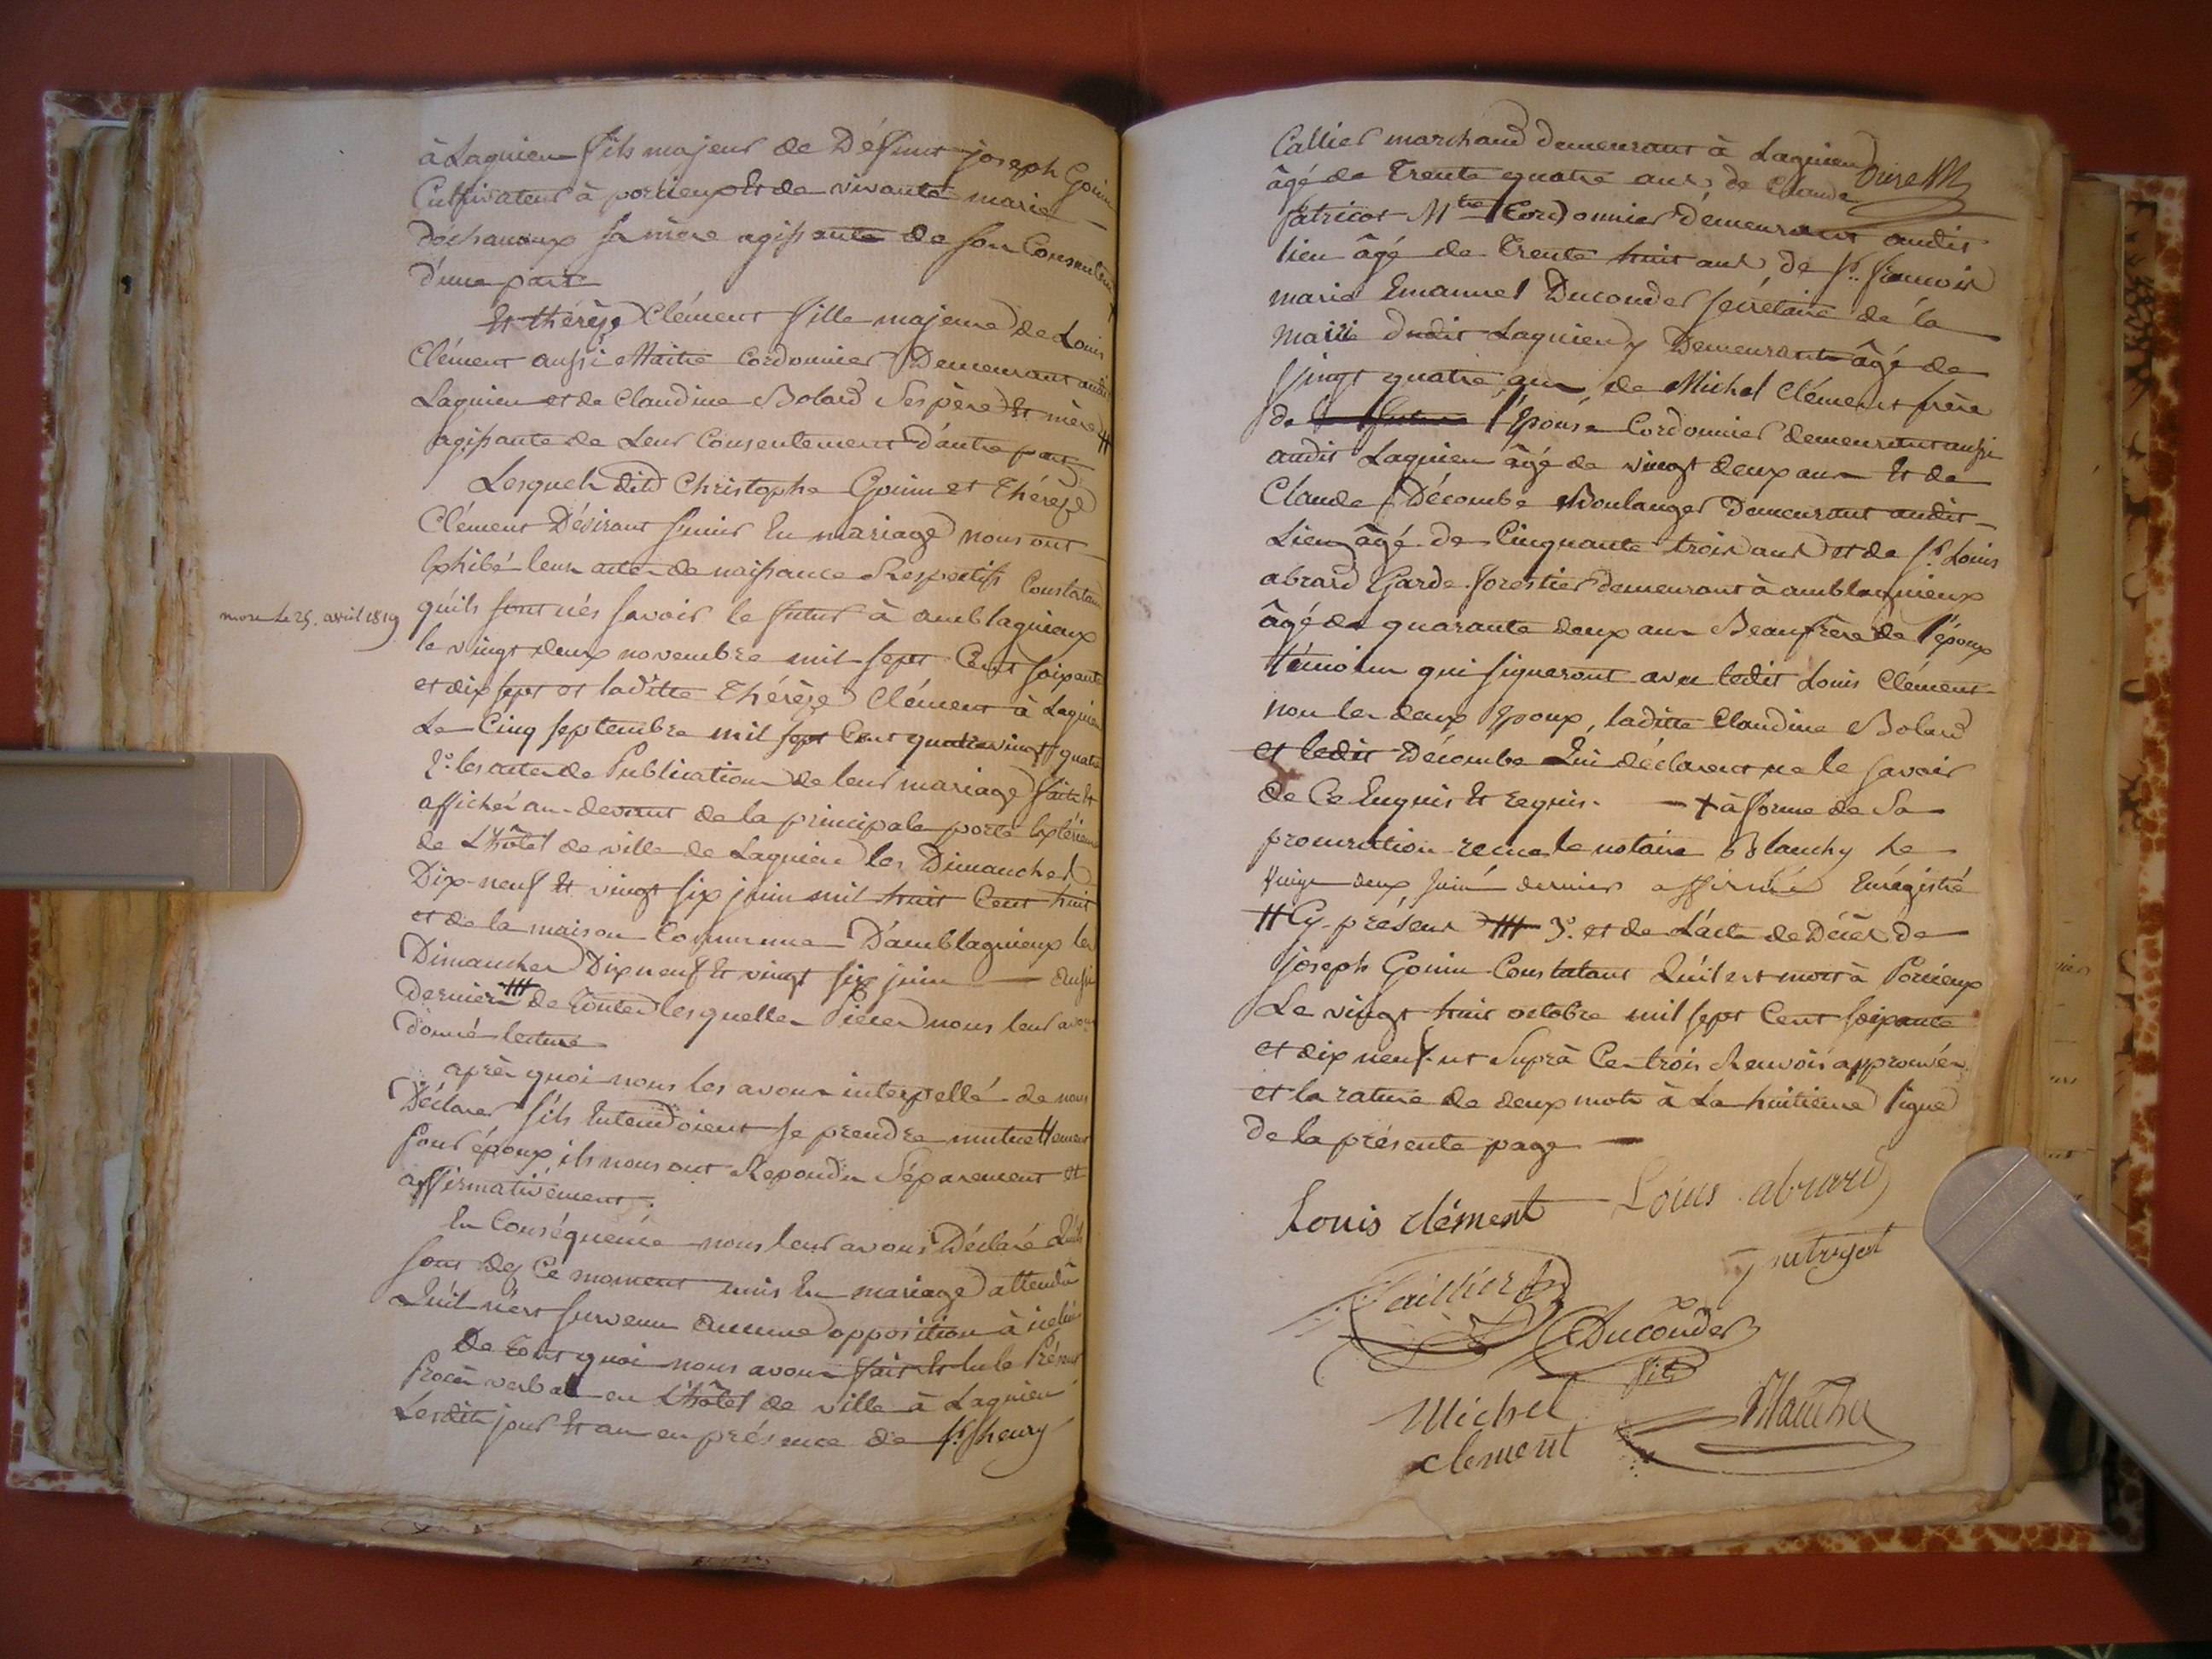 à Lagnieu fils majeur de Défunt joseph Gonin
Cultivateur à porcieux Et de vivante marie
déchanoux sa mère agissante de son Consentem
d'une part
Et thérèze Clément fille majeure de Louis
Clément aussi Maitre Cordonnier Demeurant audit
Lagnieu et de Claudine Bolard Ses père Et mère #
agissante de Leur Consentement d'autre part
Lesquels dits Christophe Gonin et Thérèze
Clément Désirant s'unir En mariage nous ont
Exhibé leurs actes de naissance Respectifs Constatant
mort le 25. avril 1819
qu'ils sont nés savoir le futur à amblagnieux
le vingt deux novembre mil sept Cent soixante
et dix sept et laditte Thérèze Clément à Lagnieu
Le Cinq septembre mil sept Cent quatrevingt quatre
2° les actes de Publication de leur mariage faits Et
affichés au-devant de la principale porte Extérieure
de L'hôtel de ville de Lagnieu les Dimanches
Dix-neuf Et vingt six juin mil huit Cent huit
et de la maison Commune D'amblagnieux les
Dimanches Dix neuf Et vingt six juin — aussi
Dernier ### de toutes lesquelles Pièces nous leur avons
donné lecture
après quoi nous les avons interpellé de nous
Déclarer s'ils Entendoient se prendre mutuellement
pour époux ils nous ont Repondu Séparement et
affirmativement.
En Conséquence nous leur avons Déclaré Qu'ils
sont dez Ce moment unis En mariage attendu
Qu'il n'est survenu aucune opposition à icelui
De tout quoi nous avons fait Et lu le Présent
Procès verbal en L'hôtel de ville à Lagnieu
Lesdits jour Et an en présence de Sr. henry
Callier marchand demeurant à Lagnieu
âgé de Trente quatre ans, de Claude
patricot Mtre Cordonnier demeurant audit
lieu âgé de Trente huit ans, de Sr. francois
marie Emanuel Ducouder secrétaire de la
Mairie dudit Lagnieu y Demeurant âgé de
vingt quatre ans, de Michel Clément frère
de l'Epouse Cordonnier demeurant aussi
audit Lagnieu âgé de vingt deux ans Et de
Claude Décombe Boulanger Demeurant audit
Lieu âgé de Cinquante trois ans et de Sr. Louis
abrard Garde forestier demeurant à amblagnieux
âgé de quarante deux ans Beaufrère de l'époux
témoins qui signeront avec ledit Louis Clément
non les deux Epoux, laditte Claudine Bolard
et ledit Décombe Qui déclarent ne le savoir
de Ce Enquis Et requis. — + à forme de Sa
procuration recue le notaire Blanchy Le
vingt deux juin dernier affirmée Enregistré
# Cy-présens ### 3°. et de L'acte de Décès de
joseph Gonin Constatant Qu'il est mort à Porcieux
Le vingt huit octobre mil sept Cent soixante
et dix neuf. ut Suprà Ces trois Renvois approuvés
et la rature de deux mots à La huitième ligne
de la présente page —
Louis clément
Louis abrard
Caillier
patricot
Ducouder
fils
Michel
clement